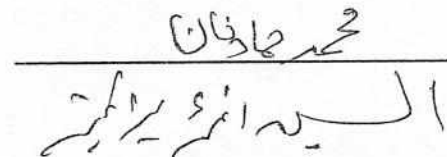 محمد حماد خان
السید انٹر پرائیز